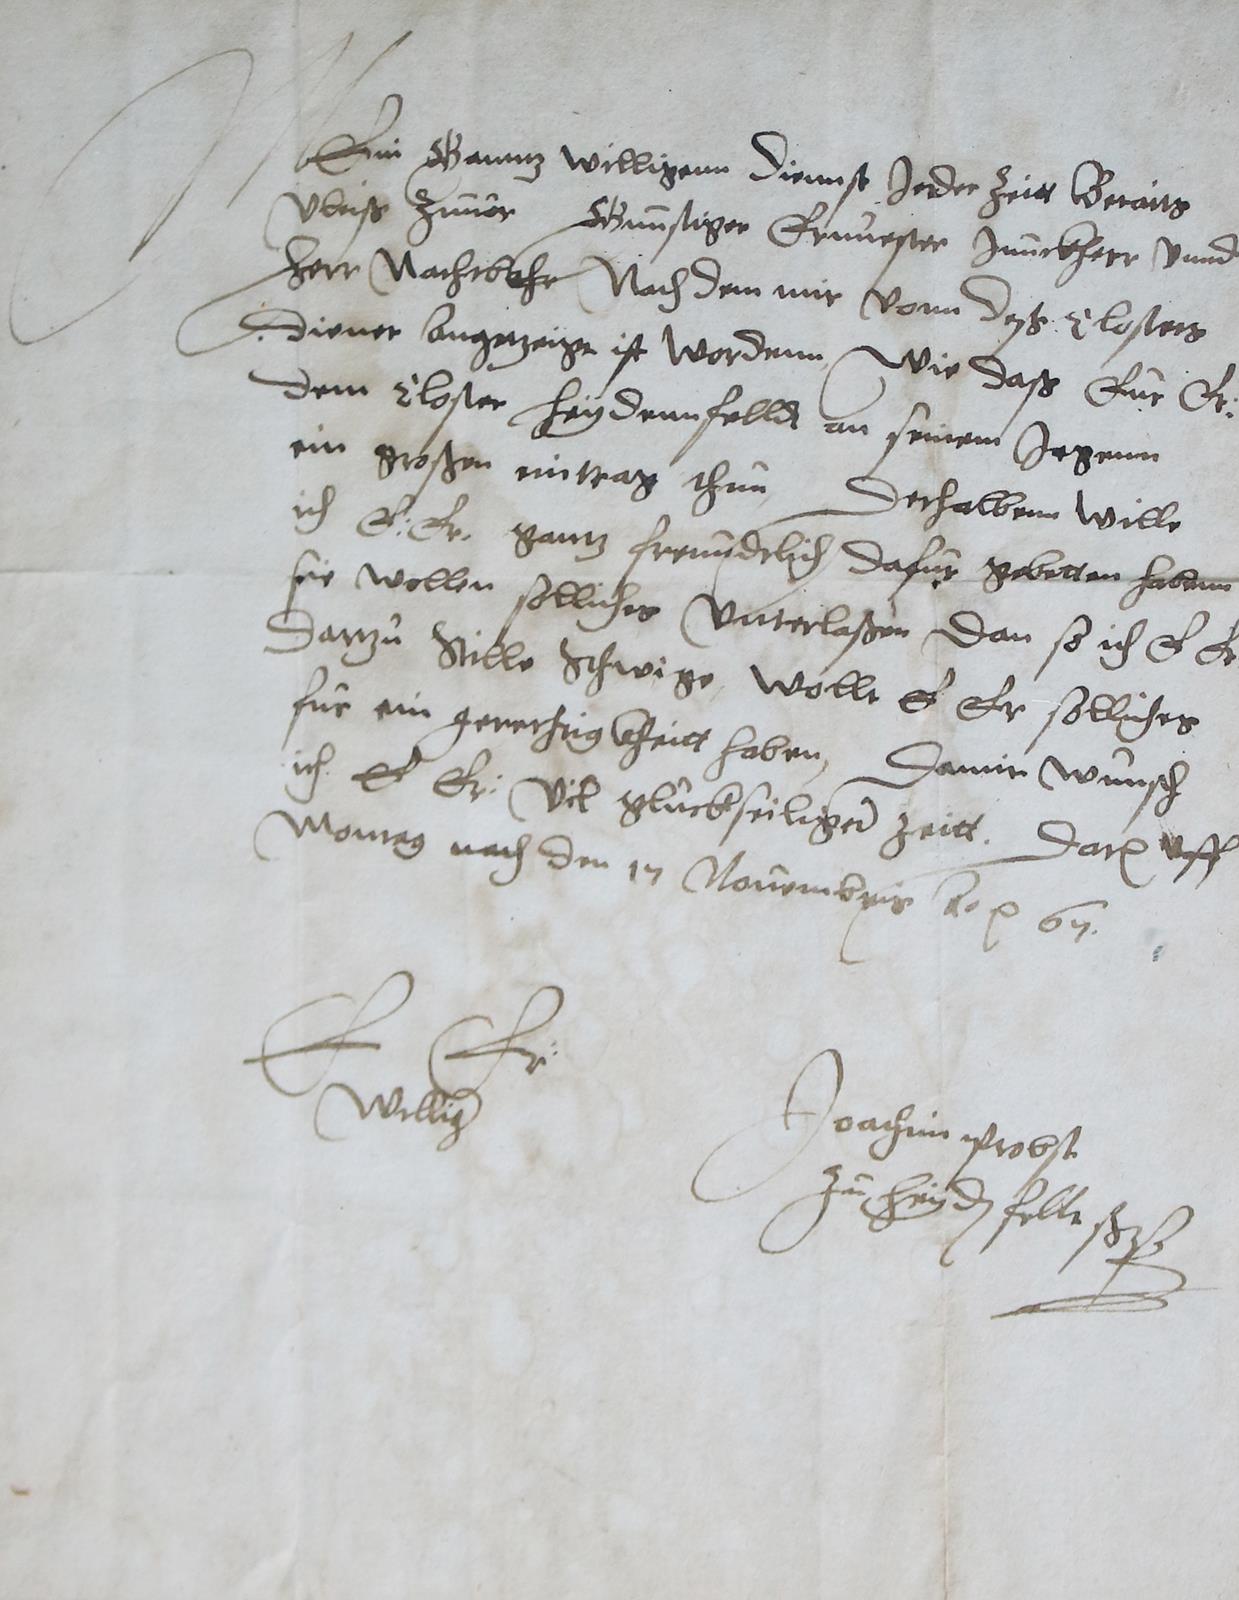 Mein Ganntz willigenn dienst Jeder Zeitt Beraits
vleis Zuuor Gunstiger Ernuester Junckherr vnnd
Herr Nachtbahr Nach dem mir vonn deß Closters
diener angetzeigt ist wordenn, Wie daß Eur Er:
dem Closter Heydennfelldt an seinem Jegenn
ein großen eintrag thun, Derhalbenn wille
ich E: Er. gantz freundtlich dafur gebetten habenn
sie wollen solliches Vnterlaßen Dan so ich E Er
dartzu stille schwige, wolle E Er solliches
fur ein gerechtigkheitt haben, Damit wunsch
ich E Er: vil gluckseiliger Zeitt. Dat[um] uff
Montag nach den 17 Nouembris 67.
E Er:
Willig
Joachim Probst
Zu Heyd[en]feltt